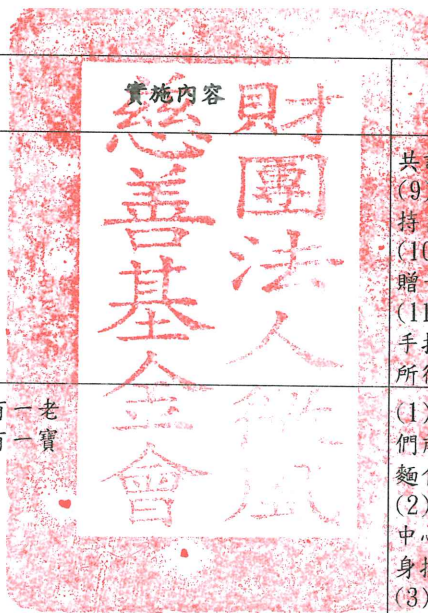 實施內容
財團法人
慈善基金會
共
(9)
持
(10
贈
(11
手
所
一老
一寶
(1)
們
麵
(2)
中
身
(3)